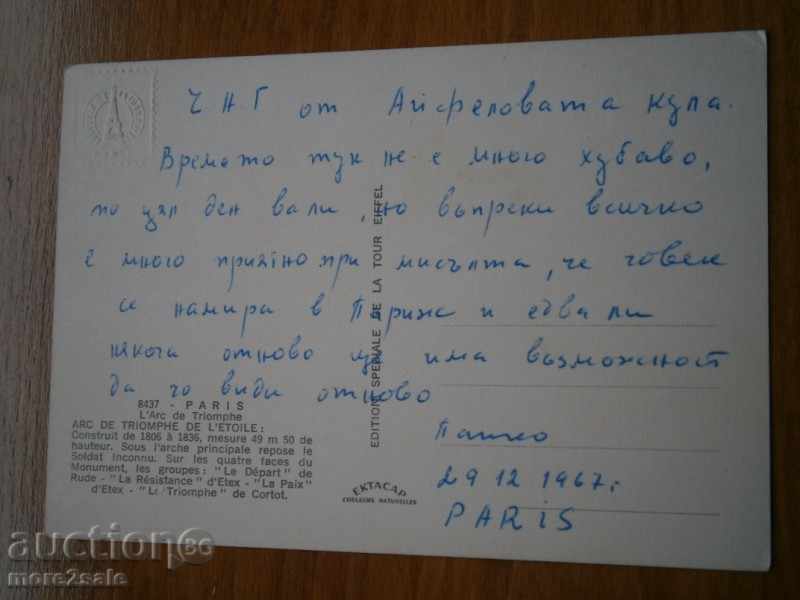 Ч Н Г от Айфеловата кула.
Времето тук не е много хубаво,
по цял ден вали, но въпреки всичко
е много приятно при мисълта, че човек
се намира в Париж и едвали
някога отново ще има възможност
да го види отново
8437 - PARIS
L'Arc de Triomphe
ARC DE TRIOMPHE DE L'ETOILE :
Construit de 1806 à 1836, mesure 49 m 50 de
hauteur. Sous l'arche principale repose le
Soldat Inconnu. Sur les quatre faces du
Monument, les groupes : "Le Départ" de
Rude - "La Résistance" d'Etex - "La Paix"
d'Etex - "Le Triomphe" de Cortot.
EDITION SPECIALE DE LA TOUR EIFFEL
EKTACAP
COULEURS NATURELLES
29 12 1967 г.
PARIS
auction
more2sale